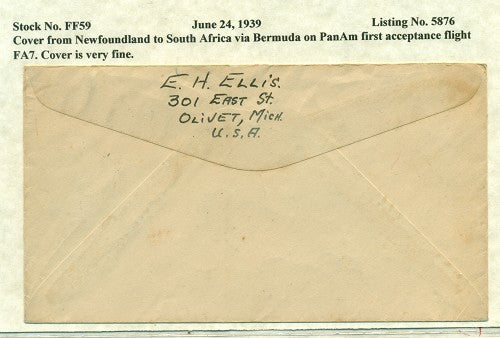 Stock No. FF59 June 24, 1939 Listing No. 5876
Cover from Newfoundland to South Africa via Bermuda on PanAm first acceptance flight
FA7. Cover is very fine.
E. H. ELLIS.
301 EAST St.
OLIVET, MICH.
U.S.A.